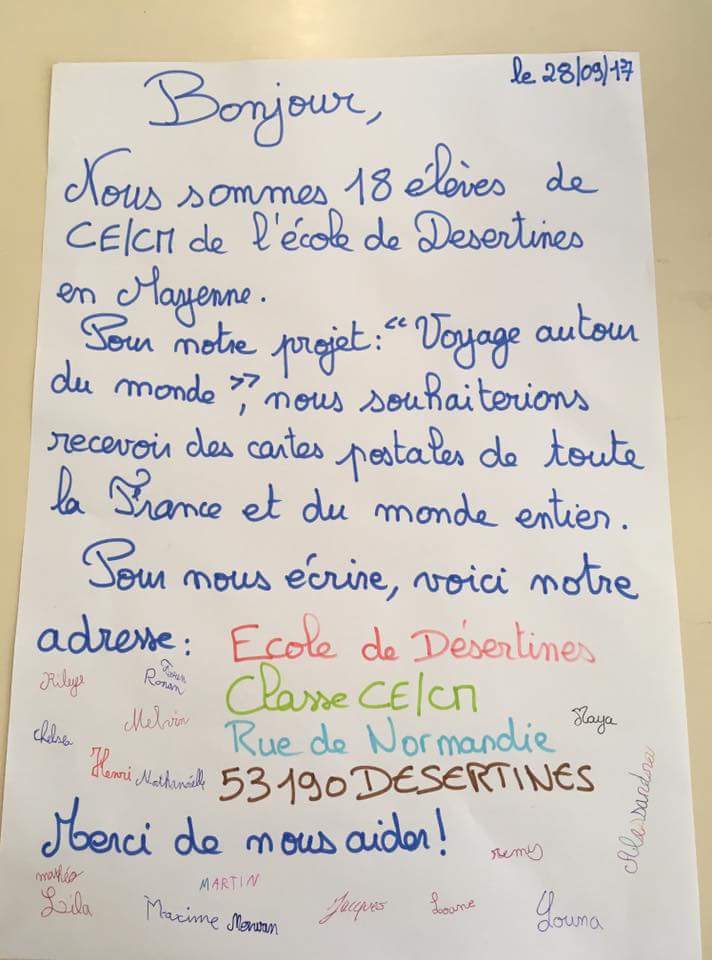 le 28/09/17
Bonjour,
Nous sommes 18 élèves de
CE/CM de l'école de Desertines
en Mayenne.
Pour notre projet: “ Voyage autour
du monde ”, nous souhaiterions
recevoir des cartes postales de toute
la France et du monde entier.
Pour nous écrire, voici notre
adresse: Ecole de Désertines
Classe CE/CM
Rue de Normandie
53190 DESERTINES
Ronan
Melvin
Maya
Chelsea
Henri
Nathanaëlle
Alassandra
Merci de nous aider!
remy
mathéo
MARTIN
Lila
Maxime
Morvan
Jacques
Loane
Louna